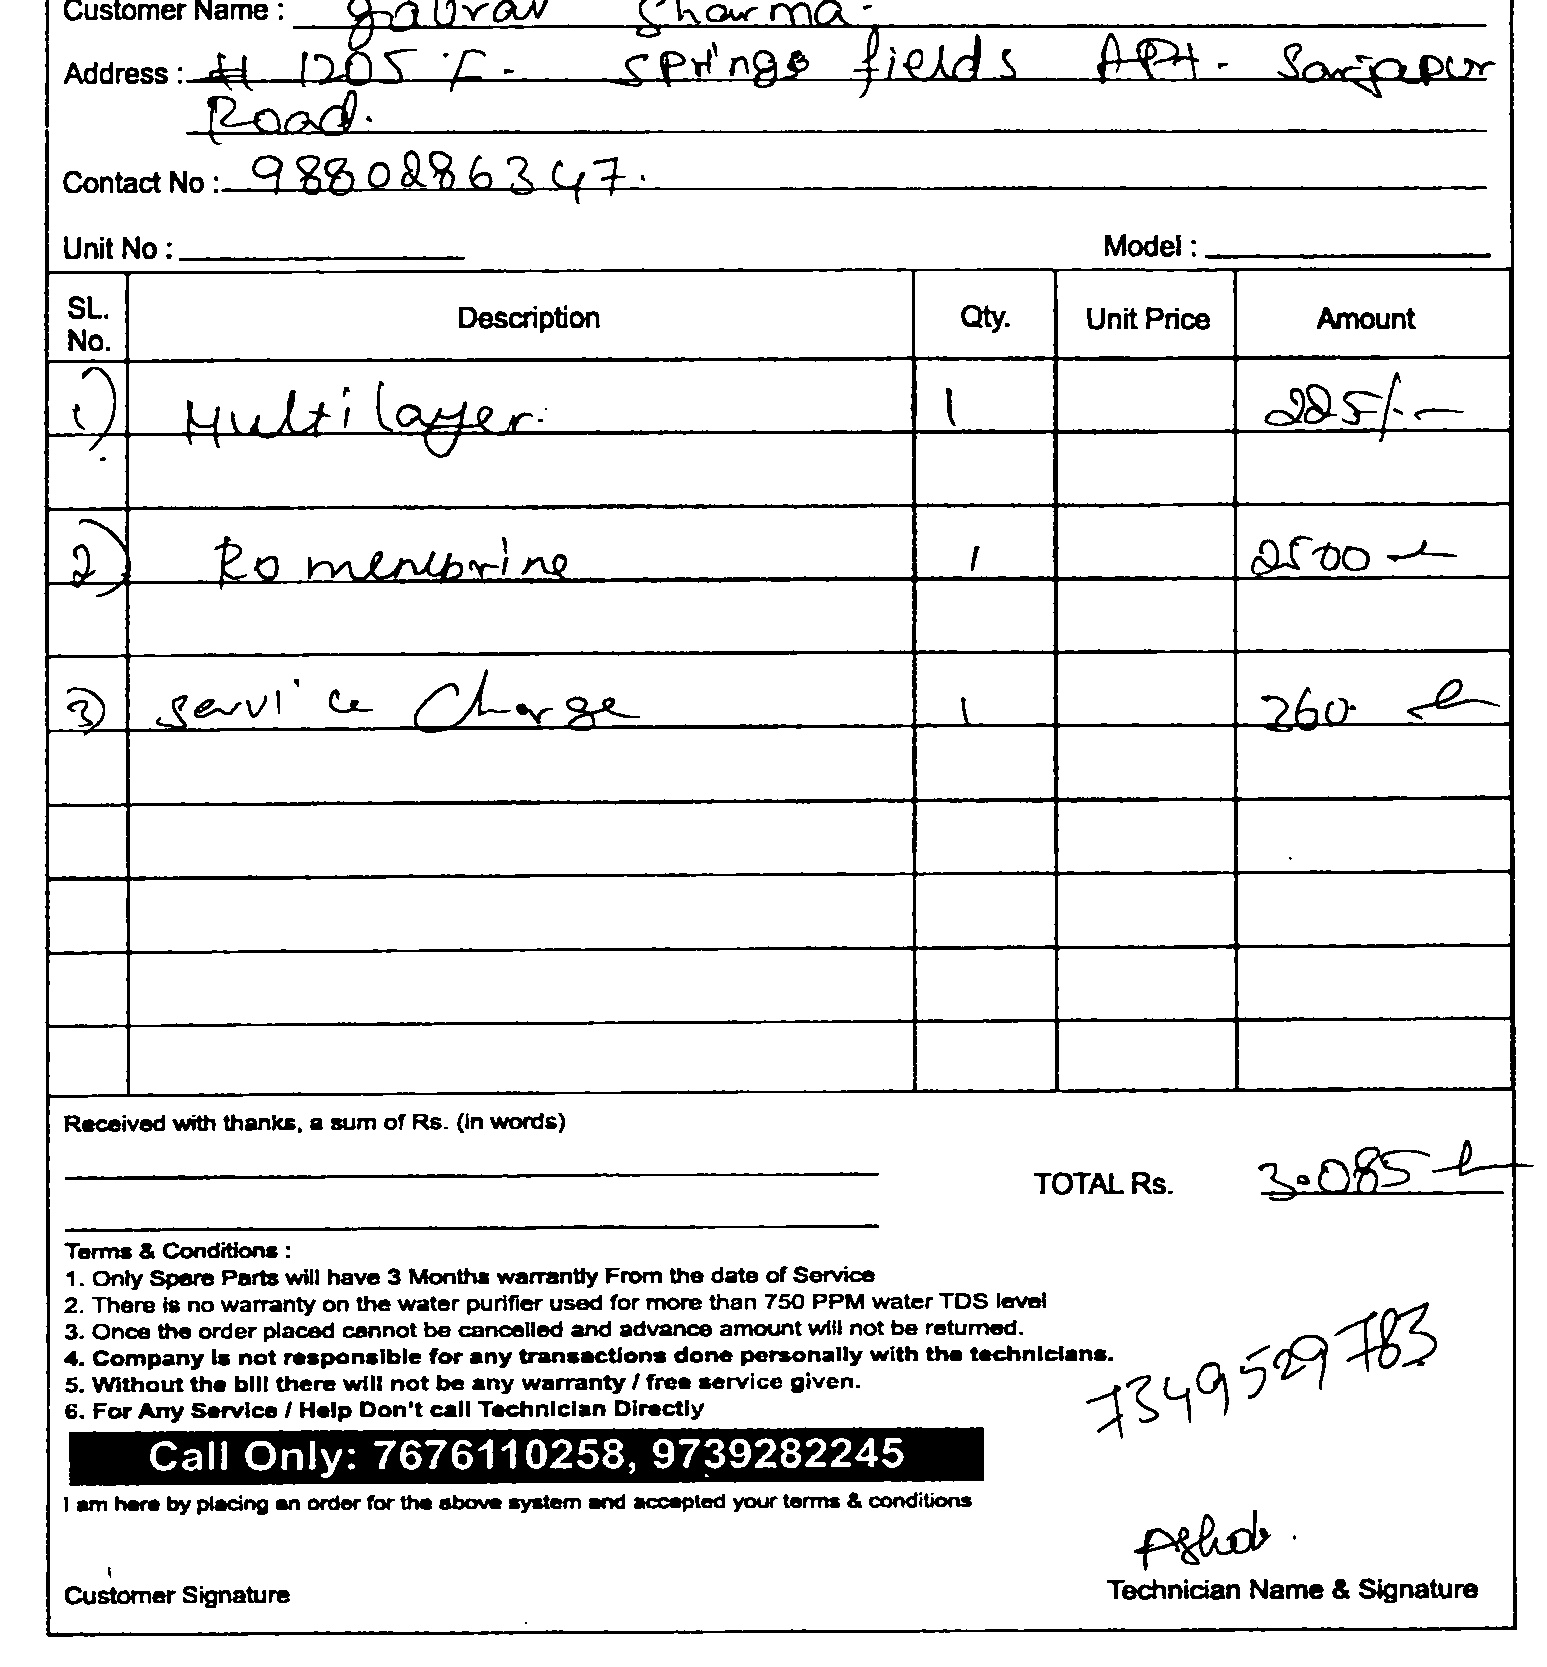 Customer Name : Gaurav Sharma.
Address : # 1205 F. Springs fields APt. Sarjapur
Road.
Contact No : 9880286347.
Unit No : Model :
SL. No. Description Qty. Unit Price Amount
1) Multilayer. 1 225/-
2) Ro 1 2500
3) Service Charge 1 260
Received with thanks, a sum of Rs. (in words)
TOTAL Rs. 3.085
Terms & Conditions :
1. Only Spare Parts will have 3 Months warrantly From the date of Service
2. There is no warranty on the water purifier used for more than 750 PPM water TDS level
3. Once the order placed cannot be cancelled and advance amount will not be returned.
4. Company is not responsible for any transactions done personally with the technicians.
5. Without the bill there will not be any warranty / free service given.
6. For Any Service / Help Don't call Technician Directly
7349529783
Call Only: 7676110258, 9739282245
I am here by placing an order for the above system and accepted your terms & conditions
Customer Signature Technician Name & Signature